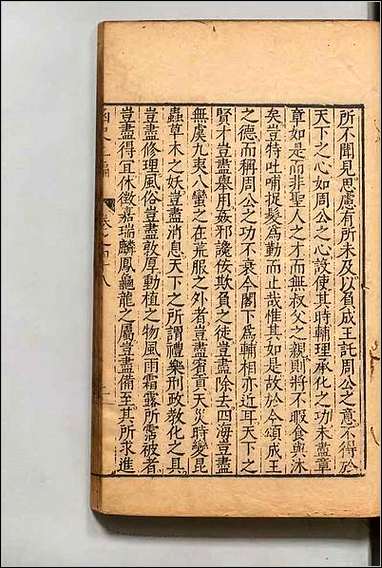 所不聞見思慮有所未及以負成王託周公之意不得於
天下之心如周公之心設使其時輔理承化之功未盡章
章如是而非聖人之才而無叔父之親則將不暇食與沐
矣豈特吐哺捉髮為勤而止哉惟其如是故於今頌成王
之德而稱周公之功不衰今閤下為輔相亦近耳天下之
賢才豈盡舉用姦邪讒佞欺負之徒豈盡除去四海豈盡
無虞九夷八蠻之在荒服之外者豈盡賓貢天災時變昆
蟲草木之妖豈盡消息天下之所謂禮樂刑政教化之具
豈盡修理風俗豈盡敦厚動植之物風雨霜露所霑被者
豈盡得宜休徵嘉瑞麟鳳龜龍之屬豈盡備至其所求進